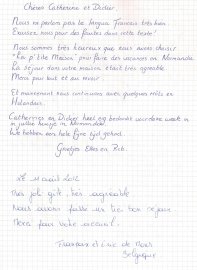 Chères Catherine et Didier,
Nous ne parlons pas la langue Francais très bien
Excusez nous pour des fautes dans cette texte!
Nous sommes très heureux que nous avons choisir
"La p'tite Maison" pour faire des vacances en Normandie.
La séjour dans votre maison était très agréable.
Merci pour tout et au revoir.
Et maintenant nous continuons avec quelques mots en
Holandais.
Catherine en Didier heel erg bedankt
in jullie huisje in Normandië.
We hebben een hele fijne tijd gehad.
Groetjes Ellen en Rob.
août 2012
gite, très agréable
Nous avons passé un très bon séjour
Merci pour votre accueil.
Francine et Luc de
Belgique